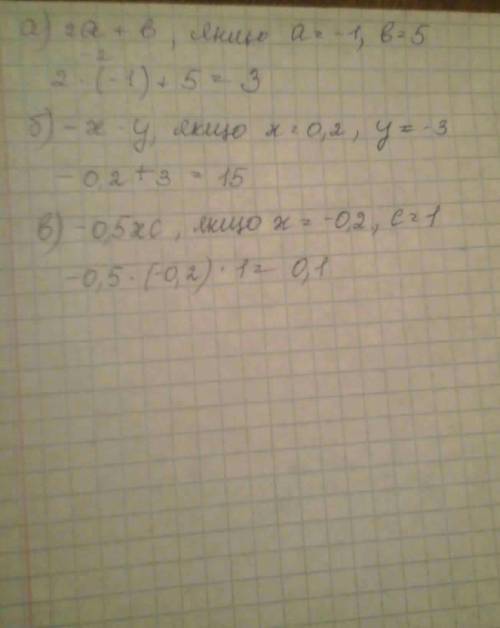 а) 2а + в, якщо а = -1, в = 5
-2
2 · (-1) + 5 = 3
б) - х - у, якщо х = 0,2, у = -3
- 0,2 + 3 = 15
в) -0,5хс, якщо х = -0,2, с = 1
-0,5 · (-0,2) · 1 = 0,1